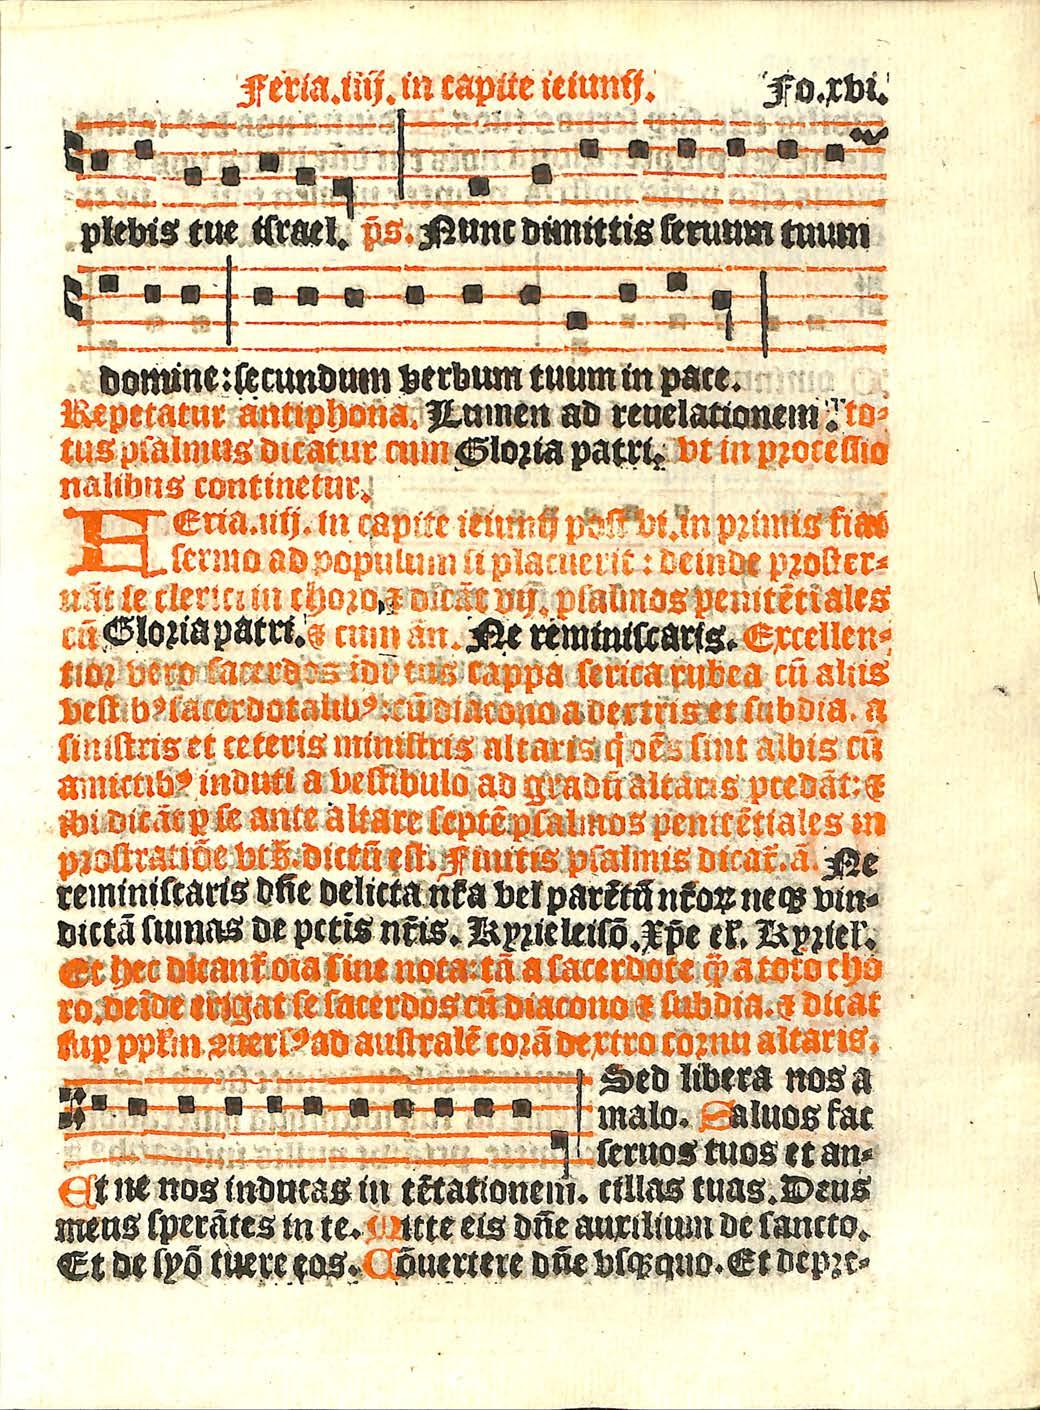 Feria.iiij. in capite ieiunij. Fo.xvi.
plebis tue israel. p̄s. Nunc dimittis seruum tuum
domine: secundum verbum tuum in pace.
Repetatur antiphona. Lumen ad reuelationem. to-
tus psalmus dicatur cum Gloria patri. vt in processio
nalibus continetur.
FEria.iiij. in capite ieiunij post vi. in primis fiat
sermo ad populum si placuerit: deinde proster-
nāt se clerici in choro ⁊ dicāt vij. psalmos penitētiales
cū Gloria patri. ⁊ cum an̄. Ne reminiscaris. Excellen-
tior vero sacerdos īdutus cappa serica rubea cū aliis
vestibꝰ sacerdotalibꝰ: cū diacono a dextris et subdia. a
sinistris et ceteris ministris altaris q̇ oēs sint albis cū
amictibꝰ induti a vestibulo ad gradū altaris pcedāt: ⁊
ibi dicāt ꝑ se ante altare septē psalmos penitētiales in
prostratiōe vtꝫ. dictū est. Finitis psalmis dicat̄. ā. Ne
reminiscaris dn̄e delicta nr̄a vel parētū nr̄oꝝ neqꝫ vin-
dictā sumas de pctīs nr̄is. Kyrieleisō. Xp̄e el̄. Kyriel̄.
Et hec dicant̄ oīa sine nota: tā a sacerdote q̄ȝ a toto cho
ro. deīde erigat se sacerdos cū diacono ⁊ subdia. ⁊ dicat
sup ppl̄m ꝯuersꝰ ad australē corā dextro cornu altaris.
Sed libera nos a
malo. Saluos fac
seruos tuos et an-
Et ne nos inducas in tētationem. cillas tuas. Deus
meus sperātes in te. Mitte eis dn̄e auxilium de sancto.
Et de syō tuere eos. Cōuertere dn̄e vsqꝫquo. Et depre-